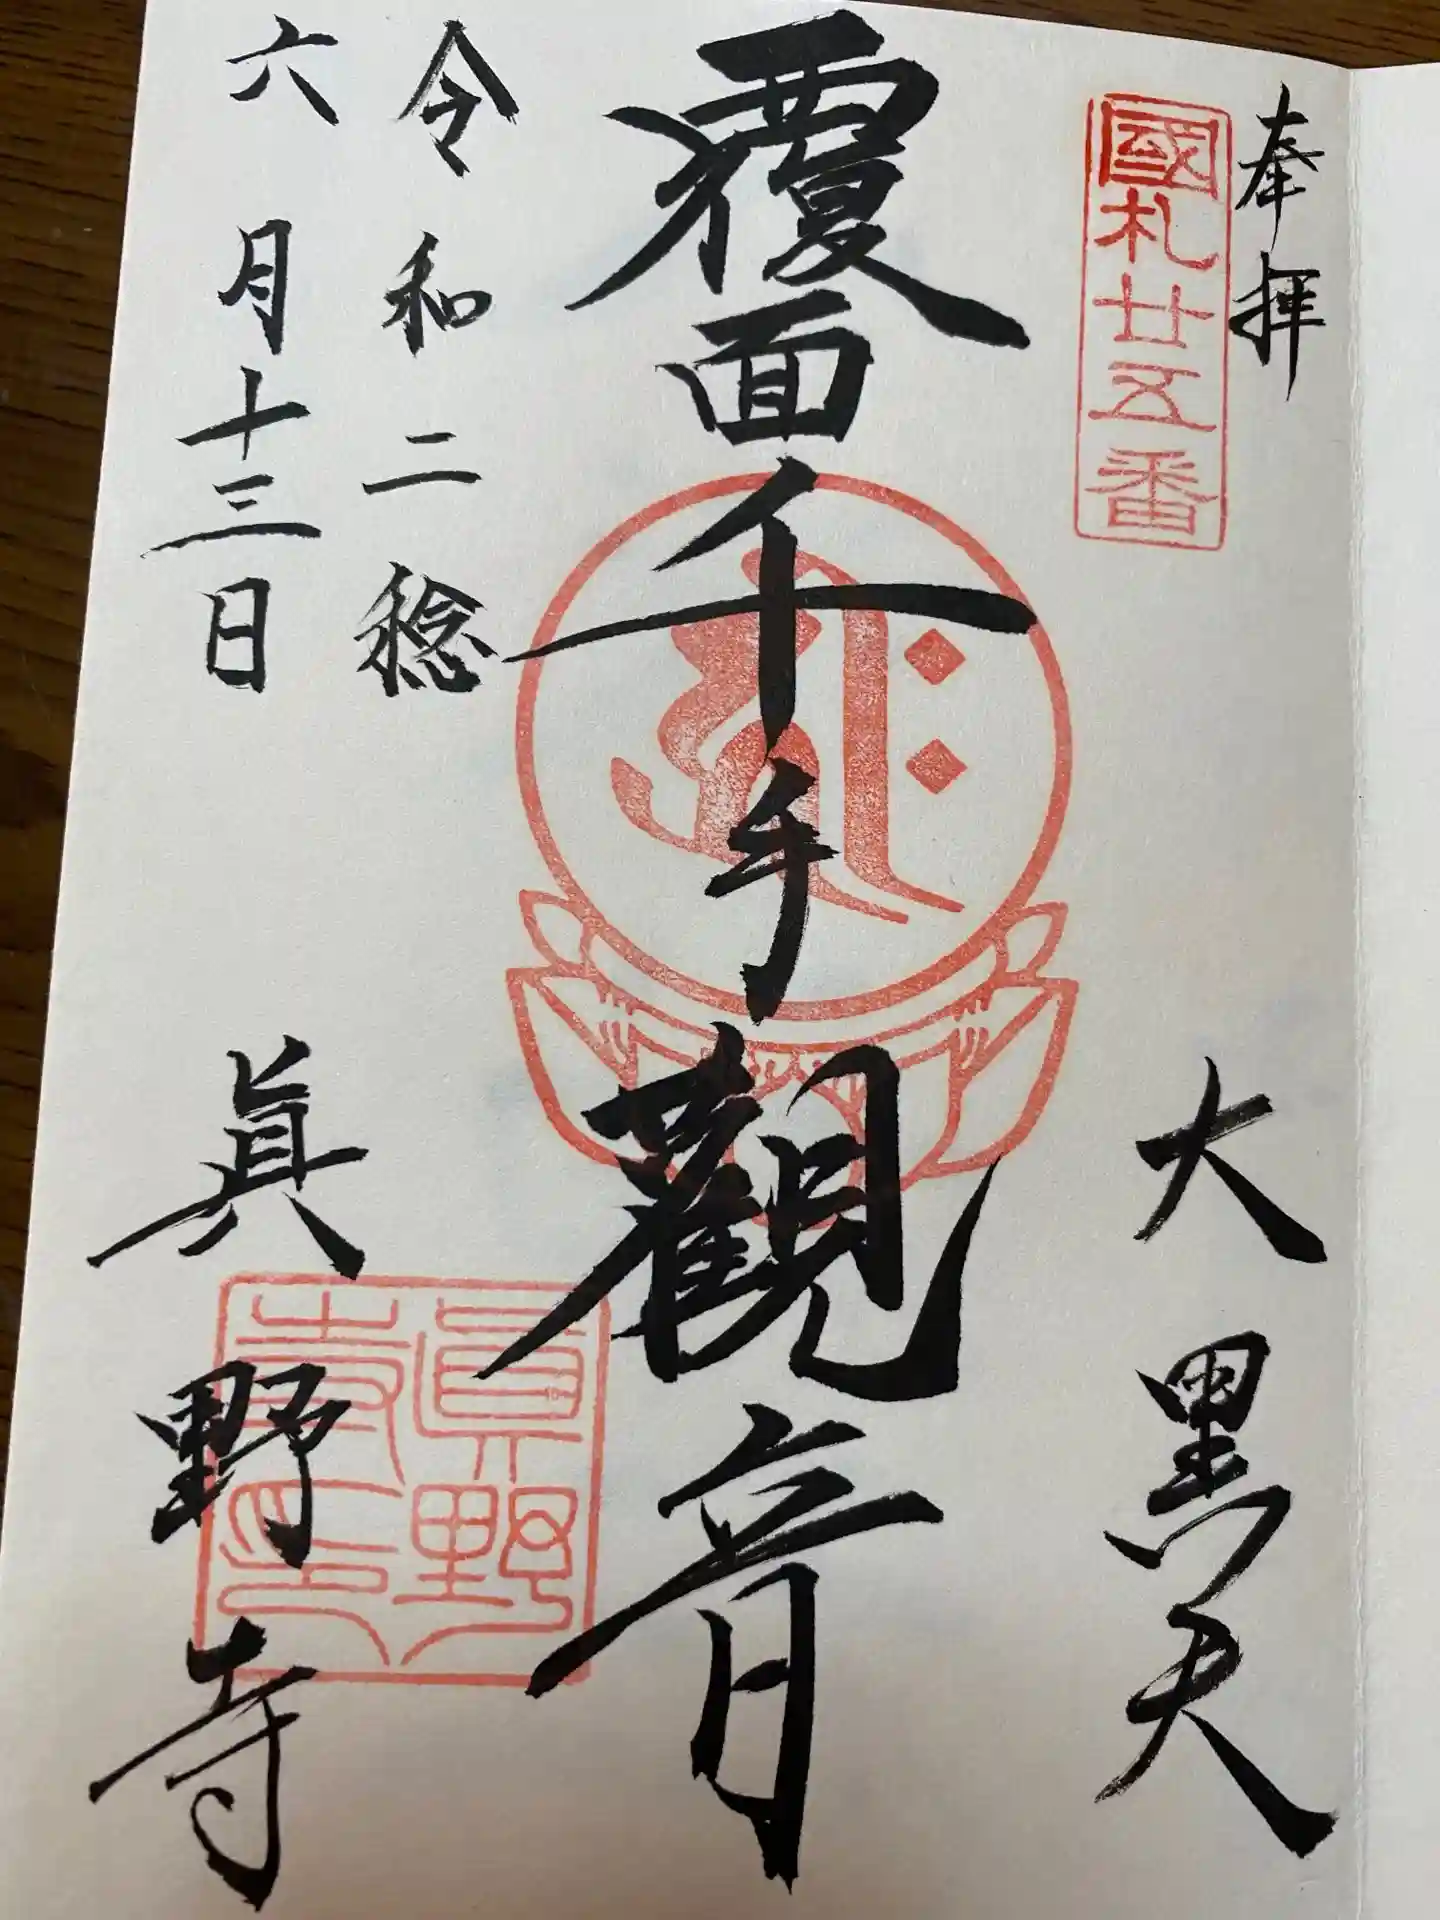 奉拝
國札廿五番
大黒天
覆面千手觀音
令和二稔
六月十三日
眞野寺
眞野寺印